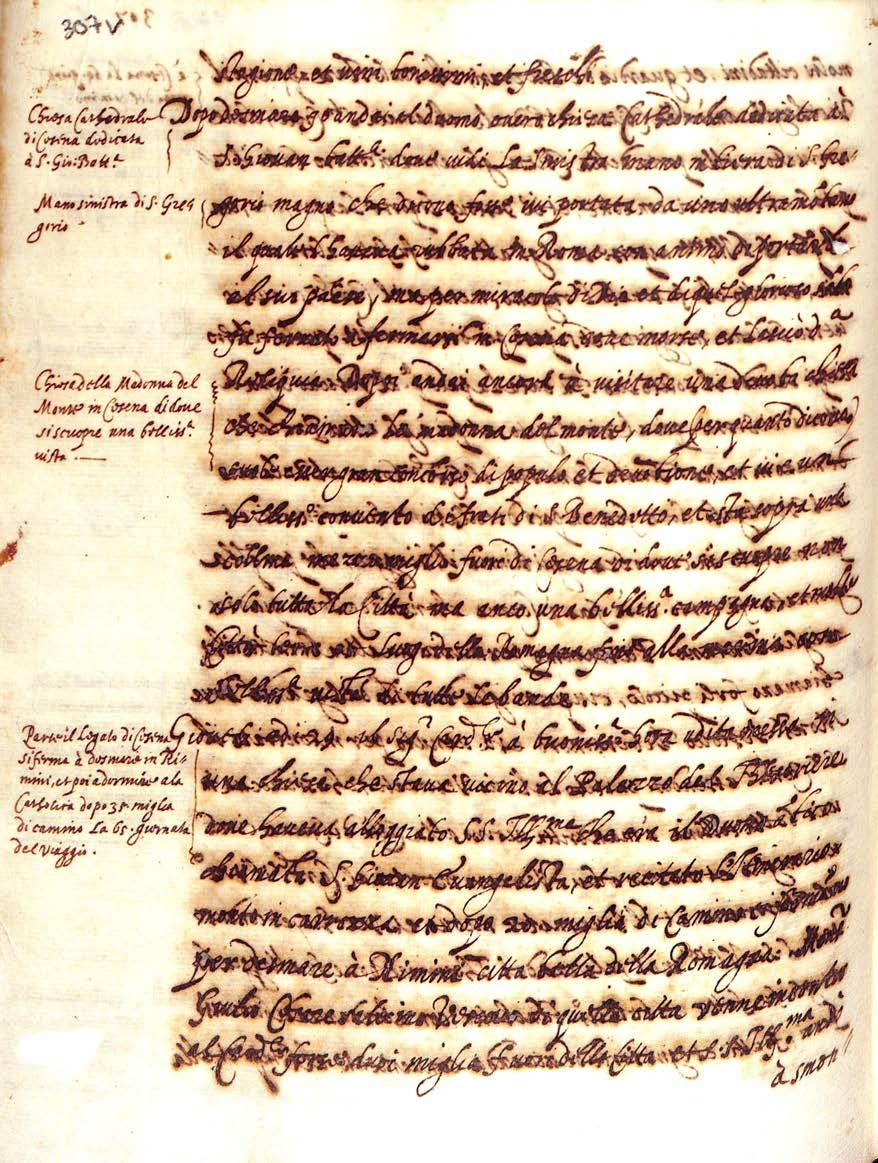 307v
stagione et vini bonissimi et freschi
Chiesa Cathedrale
di Cesena dedicata
à S. Gio: Batt.a
Dopo desinare andai al duomo overo chiesa Cathedrale dedicata à
S. Giovan Batt.a dove vidi la sinistra mano intiera di S. Gre-
Mano sinistra di S. Gre-
gorio
gorio magno che dicono fosse ivi portata da uno ultramontano
il quale l'haveva rubbata in Roma con animo di portarla
al suo paese, ma per miracolo di Dio et di quel glorioso
fu forzato à fermarsi in Cesena dove morse, et lasciò d.a
Chiesa della Madonna del
Monte in Cesena di dove
si scuopre una belliss.a
vista.
Reliquia. Dopoi andai ancora à visitare una devota chiesa
che chiamano la madonna del monte, dove (per quanto dicono)
suole esser gran concorso di populo et devotione, et ivi è un
belliss.o convento de frati di S. Benedetto, et stà sopra una
collina mezzo miglio fuori di Cesena di dove si scuopre non
solo tutta la Città ma anco una belliss.a campagna, et molte
Città terre et luoghi della Romagna fino alla marina con
belliss.a vista da tutte le bande
Parte il Legato di Cesena
si ferma à desinare in Ri-
mini, et poi à dormire a la
Catholica dopo 35 miglia
di camino la 65 giornata
del viaggio.
Giovedi à di 29 il Sig.r Card.le à buoniss.a hora udita messa in
una chiesa che stava vicino al Palazzo del
dove haveva alloggiato S. S. Ill.ma che era il
chiamata S. Giovan Evangelista, et recitato l'Itinerario
montò in carrozza et dopo 20 miglia di camino
per desinare à Rimini città bella della Romagna. Mons.r
Giulio Cesare Salicino Vescovo di quella città venne incontro
al Card.le forse dui miglia fuori della Città et S. S. Ill.ma andò
à smon